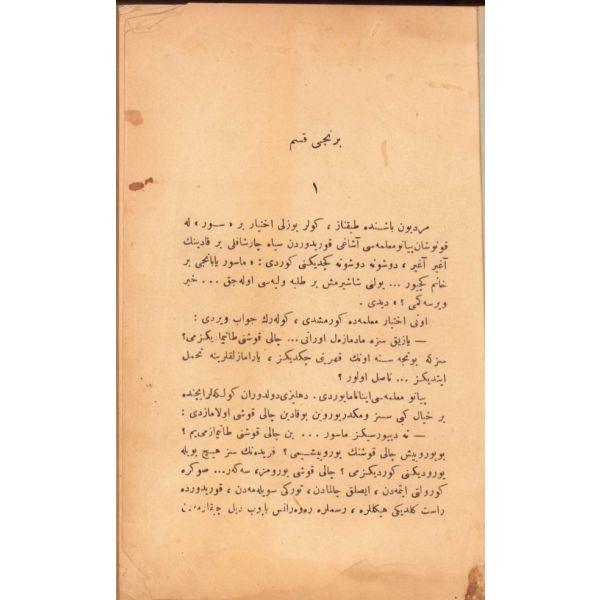 برنجی قسم
١
مردیون باشنده طیقناز ، كولر یوزلی اختیار بر « سور » له
قونوشان پیانو معلمه‌سی آشاغی قوریدوردن سیاه چارشافلی بر قادینك
آغیر آغیر ، دوشونه دوشونه كچدیكنی كوردی : « ماسور یابانجی بر
خانم كچیور ... یولنی شاشیرمش بر طلبه ولیه‌سی اوله‌جق ... خبر
ویرسه‌كمی ؟ » دیدی .
اونی اختیار معلمه‌ده كورمشدی ، كوله‌رك جواب ویردی :
— یازیق سزه مادمازه‌ل اورانی ... چالی قوشنی طانیمادیكزمی ؟
سزكه بونجه سنه اونك قهرینی چكدیكز ، یارامازلقلرینه تحمل
ایتدیكز ... ناصل اولور ؟
پیانو معلمه‌سی اینانامایوردی . دهلیزی دولدوران كولكه‌لر ایچنده
بر خیال كبی سسز و مكدر یوروین بوقادین چالی قوشی اولامازدی :
— نه دییورسیكز ماسور ... بن چالی قوشنی طانیمازمی‌یم ؟
بویورویش چالی قوشنك یورویشیمی ؟ فریده‌نك سز هیچ بویله
یورودیكنی كوردیكزمی ؟ چالی قوشی یورومز ، سه‌كر ... صوكره
كورولتی ایتمه‌دن ، ایصلق چالمادن ، توركی سویله‌مه‌دن ، قوریدورده
راست كلدیكی هیكللره ، رسملره ره‌وه‌رانس یاپوب دیل چیقارمه‌دن